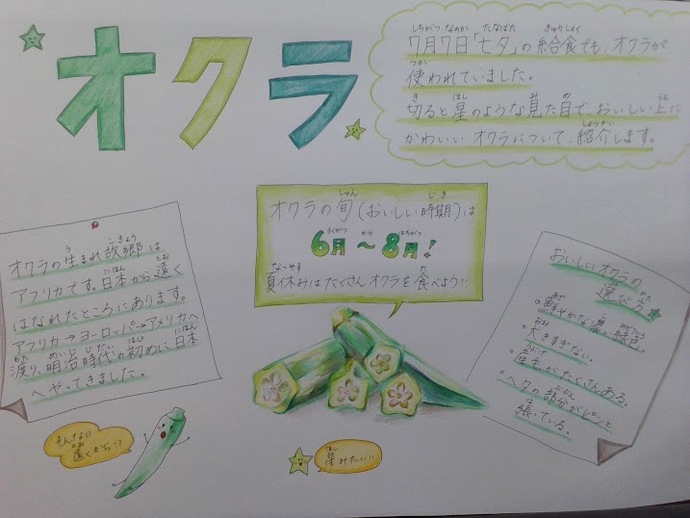 オクラ
7月7日「七夕」の給食でも、オクラが
使われていました。
切ると星のような見た目で、おいしい上に
かわいいオクラについて、紹介します。
オクラの旬(おいしい時期)は
6月〜8月!
夏休みはたくさんオクラを食べよう!!
オクラの生まれ故郷は
アフリカです。日本から遠く
はなれたところにあります。
アフリカ→ヨーロッパ→アメリカへ
渡り、明治時代の初めに日本
へやってきました。
おいしいオクラの
選び方
•鮮やかな濃い緑色。
•大きすぎない。
•産毛がたくさんある。
•ヘタの部分がピンと
張っている。
そんなに
遠くから!?
星みたい!!